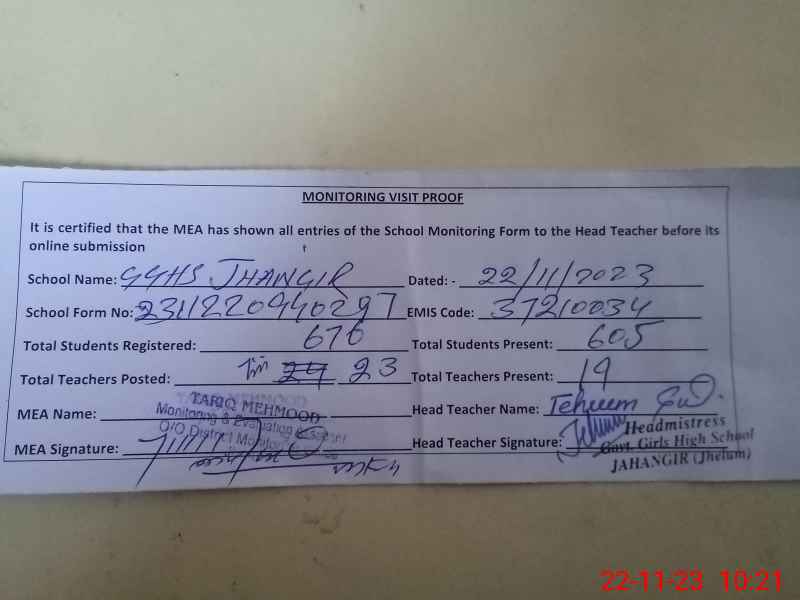 MONITORING VISIT PROOF
It is certified that the MEA has shown all entries of the School Monitoring Form to the Head Teacher before its
online submission
School Name: GGHS JHANGIR Dated: - 22/11/2023
School Form No: 231122094 0297 EMIS Code: 37210034
Total Students Registered: 676 Total Students Present: 605
Total Teachers Posted: 24 23 Total Teachers Present: 19
MEA Name: TARIQ MEHMOOD Head Teacher Name: Tehreem
Monitoring & Evaluation
O/O District Monitoring
MEA Signature: Head Teacher Signature:
Headmistress
Govt. Girls High School
JAHANGIR (Jhelum)
22-11-23 10:21